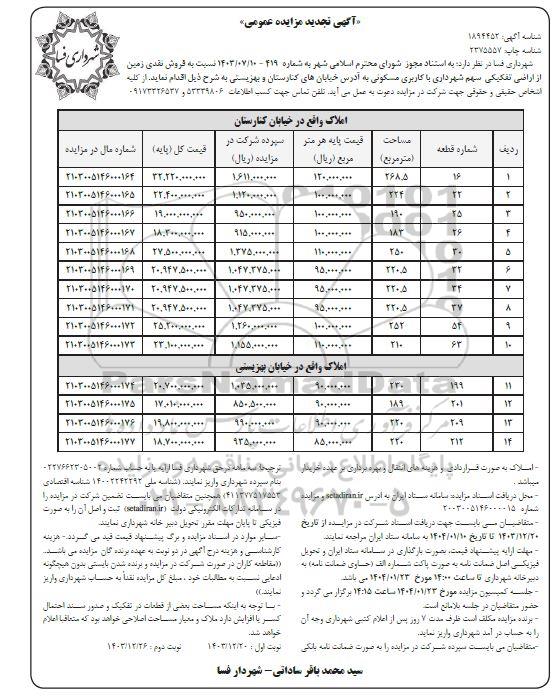 «آگهی تجدید مزایده عمومی»
شهرداری فسا
شناسه آگهی: ۱۸۹۴۴۵۲
شناسه چاپ: ۲۳۷۵۵۵۷
شهرداری فسا در نظر دارد؛ به استناد مجوز شورای محترم اسلامی شهر به شماره ۴۱۹ - ۱۴۰۳/۰۷/۱۰ نسبت به فروش نقدی زمین
از اراضی تفکیکی سهم شهرداری با کاربری مسکونی به آدرس خیابان های کنارستان و بهزیستی به شرح ذیل اقدام نماید. از کلیه
اشخاص حقیقی و حقوقی جهت شرکت در مزایده دعوت به عمل می آید. تلفن تماس جهت کسب اطلاعات ۵۳۳۳۹۸۰۶ و ۰۹۱۷۳۳۲۶۵۳۷
املاک واقع در خیابان کنارستان
ردیف شماره قطعه مساحت (مترمربع) قیمت پایه هر متر مربع (ریال) سپرده شرکت در مزایده (ریال) قیمت کل (پایه) شماره مال در مزایده
۱ ۱۶ ۲۶۸.۵ ۱۲۰.۰۰۰.۰۰۰ ۱,۶۱۱,۰۰۰,۰۰۰ ۳۲,۲۲۰,۰۰۰,۰۰۰ ۲۱۰۳۰۰۵۱۴۶۰۰۰۱۶۴
۲ ۲۲ ۲۲۴ ۱۰۰.۰۰۰.۰۰۰ ۱,۱۲۰,۰۰۰,۰۰۰ ۲۲,۴۰۰,۰۰۰,۰۰۰ ۲۱۰۳۰۰۵۱۴۶۰۰۰۱۶۵
۳ ۲۵ ۱۹۰ ۱۰۰.۰۰۰.۰۰۰ ۹۵۰,۰۰۰,۰۰۰ ۱۹,۰۰۰,۰۰۰,۰۰۰ ۲۱۰۳۰۰۵۱۴۶۰۰۰۱۶۶
۴ ۲۶ ۱۸۳ ۱۰۰.۰۰۰.۰۰۰ ۹۱۵,۰۰۰,۰۰۰ ۱۸,۳۰۰,۰۰۰,۰۰۰ ۲۱۰۳۰۰۵۱۴۶۰۰۰۱۶۷
۵ ۳۰ ۲۵۰ ۱۱۰.۰۰۰.۰۰۰ ۱,۳۷۵,۰۰۰,۰۰۰ ۲۷,۵۰۰,۰۰۰,۰۰۰ ۲۱۰۳۰۰۵۱۴۶۰۰۰۱۶۸
۶ ۳۲ ۲۲۰.۵ ۹۵.۰۰۰.۰۰۰ ۱,۰۴۷,۳۷۵,۰۰۰ ۲۰,۹۴۷,۵۰۰,۰۰۰ ۲۱۰۳۰۰۵۱۴۶۰۰۰۱۶۹
۷ ۳۴ ۲۲۰.۵ ۹۵.۰۰۰.۰۰۰ ۱,۰۴۷,۳۷۵,۰۰۰ ۲۰,۹۴۷,۵۰۰,۰۰۰ ۲۱۰۳۰۰۵۱۴۶۰۰۰۱۷۰
۸ ۳۷ ۲۲۰.۵ ۹۵.۰۰۰.۰۰۰ ۱,۰۴۷,۳۷۵,۰۰۰ ۲۰,۹۴۷,۵۰۰,۰۰۰ ۲۱۰۳۰۰۵۱۴۶۰۰۰۱۷۱
۹ ۵۴ ۲۵۲ ۱۰۰.۰۰۰.۰۰۰ ۱,۲۶۰,۰۰۰,۰۰۰ ۲۵,۲۰۰,۰۰۰,۰۰۰ ۲۱۰۳۰۰۵۱۴۶۰۰۰۱۷۲
۱۰ ۶۳ ۲۱۰ ۱۱۰.۰۰۰.۰۰۰ ۱,۱۵۵,۰۰۰,۰۰۰ ۲۳,۱۰۰,۰۰۰,۰۰۰ ۲۱۰۳۰۰۵۱۴۶۰۰۰۱۷۳
املاک واقع در خیابان بهزیستی
۱۱ ۱۹۹ ۲۳۰ ۹۰.۰۰۰.۰۰۰ ۱,۰۳۵,۰۰۰,۰۰۰ ۲۰,۷۰۰,۰۰۰,۰۰۰ ۲۱۰۳۰۰۵۱۴۶۰۰۰۱۷۴
۱۲ ۲۰۱ ۱۸۹ ۹۰.۰۰۰.۰۰۰ ۸۵۰,۵۰۰,۰۰۰ ۱۷,۰۱۰,۰۰۰,۰۰۰ ۲۱۰۳۰۰۵۱۴۶۰۰۰۱۷۵
۱۳ ۲۰۹ ۲۲۰ ۹۰.۰۰۰.۰۰۰ ۹۹۰,۰۰۰,۰۰۰ ۱۹,۸۰۰,۰۰۰,۰۰۰ ۲۱۰۳۰۰۵۱۴۶۰۰۰۱۷۶
۱۴ ۲۱۲ ۲۲۰ ۸۵.۰۰۰.۰۰۰ ۹۳۵,۰۰۰,۰۰۰ ۱۸,۷۰۰,۰۰۰,۰۰۰ ۲۱۰۳۰۰۵۱۴۶۰۰۰۱۷۷
- املاک به صورت قراردادی و هزینه های انتقال و بهره برداری بر عهده خریدار
میباشد .
- محل دریافت اسناد مزایده: سامانه ستاد ایران به آدرس setadiran.ir و مزایده
شماره ۲۰۰۳۰۰۵۱۴۶۰۰۰۰۱۵
- متقاضیان می بایست جهت دریافت اسناد شرکت در مزایده از تاریخ
۱۴۰۳/۱۲/۲۰ تا تاریخ ۱۴۰۴/۰۱/۱۰ به سامانه ستاد ایران مراجعه نمایند.
- مهلت ارایه پیشنهاد قیمت، بصورت بارگذاری در سامانه ستاد ایران و تحویل
فیزیکی اصل ضمانت نامه به صورت پاکت شماره الف (حاوی ضمانت نامه) به
دبیرخانه شهرداری تا ساعت ۱۴:۰۰ مورخ ۱۴۰۴/۰۱/۲۳ می باشد.
- جلسه کمیسیون مزایده مورخ ۱۴۰۴/۰۱/۲۳ ساعت ۱۴:۱۵ برگزار می گردد و
حضور متقاضیان در جلسه بلامانع است.
- برنده مزایده مکلف است ظرف مدت ۷ روز پس از اعلام کتبی شهرداری وجه آن
را به حساب در آمد شهرداری واریز نماید.
- متقاضیان می بایست سپرده شرکت در مزایده را به صورت ضمانت نامه بانکی
ترجیحا سه ماهه نرخی شهرداری فسا ارایه یا به حساب شماره ۰۲۲۷۶۶۲۳۰۵۰۰۲
بنام سپرده شهرداری واریز نمایند. (شناسه ملی ۱۴۰۰۲۲۴۲۲۹۲ شناسه اقتصادی
۴۱۱۳۷۷۵۱۷۵۵۲) همچنین متقاضیان می بایست تضمین شرکت در مزایده را
در سامانه تدارکات الکترونیکی دولت (setadiran.ir) ثبت و اصل آن را به صورت
فیزیکی تا پایان مهلت مقرر تحویل دبیر خانه شهرداری نمایند.
-سایر موارد در اسناد مزایده و برگ پیشنهاد قیمت قید می گردد.- هزینه
کارشناسی و هزینه درج آگهی در دو نوبت به عهده برنده گان مزایده می باشد.
((مقاطعه کاران در صورت شرکت در مزایده و برنده شدن بایستی بدون هیچگونه
ادعایی نسبت به مطالبات خود ، مبلغ کل مزایده نقداً به حساب شهرداری واریز
نمایند.))
- با توجه به اینکه مساحت بعضی از قطعات در تفکیک و صدور سند احتمال
کسر یا افزایش دارد ملاک و معیار مساحت اصلاحی خواهد بود که متعاقبا اعلام
خواهد شد.
نوبت اول : ۱۴۰۳/۱۲/۲۰ نوبت دوم : ۱۴۰۳/۱۲/۲۶
سید محمد باقر ساداتی - شهردار فسا